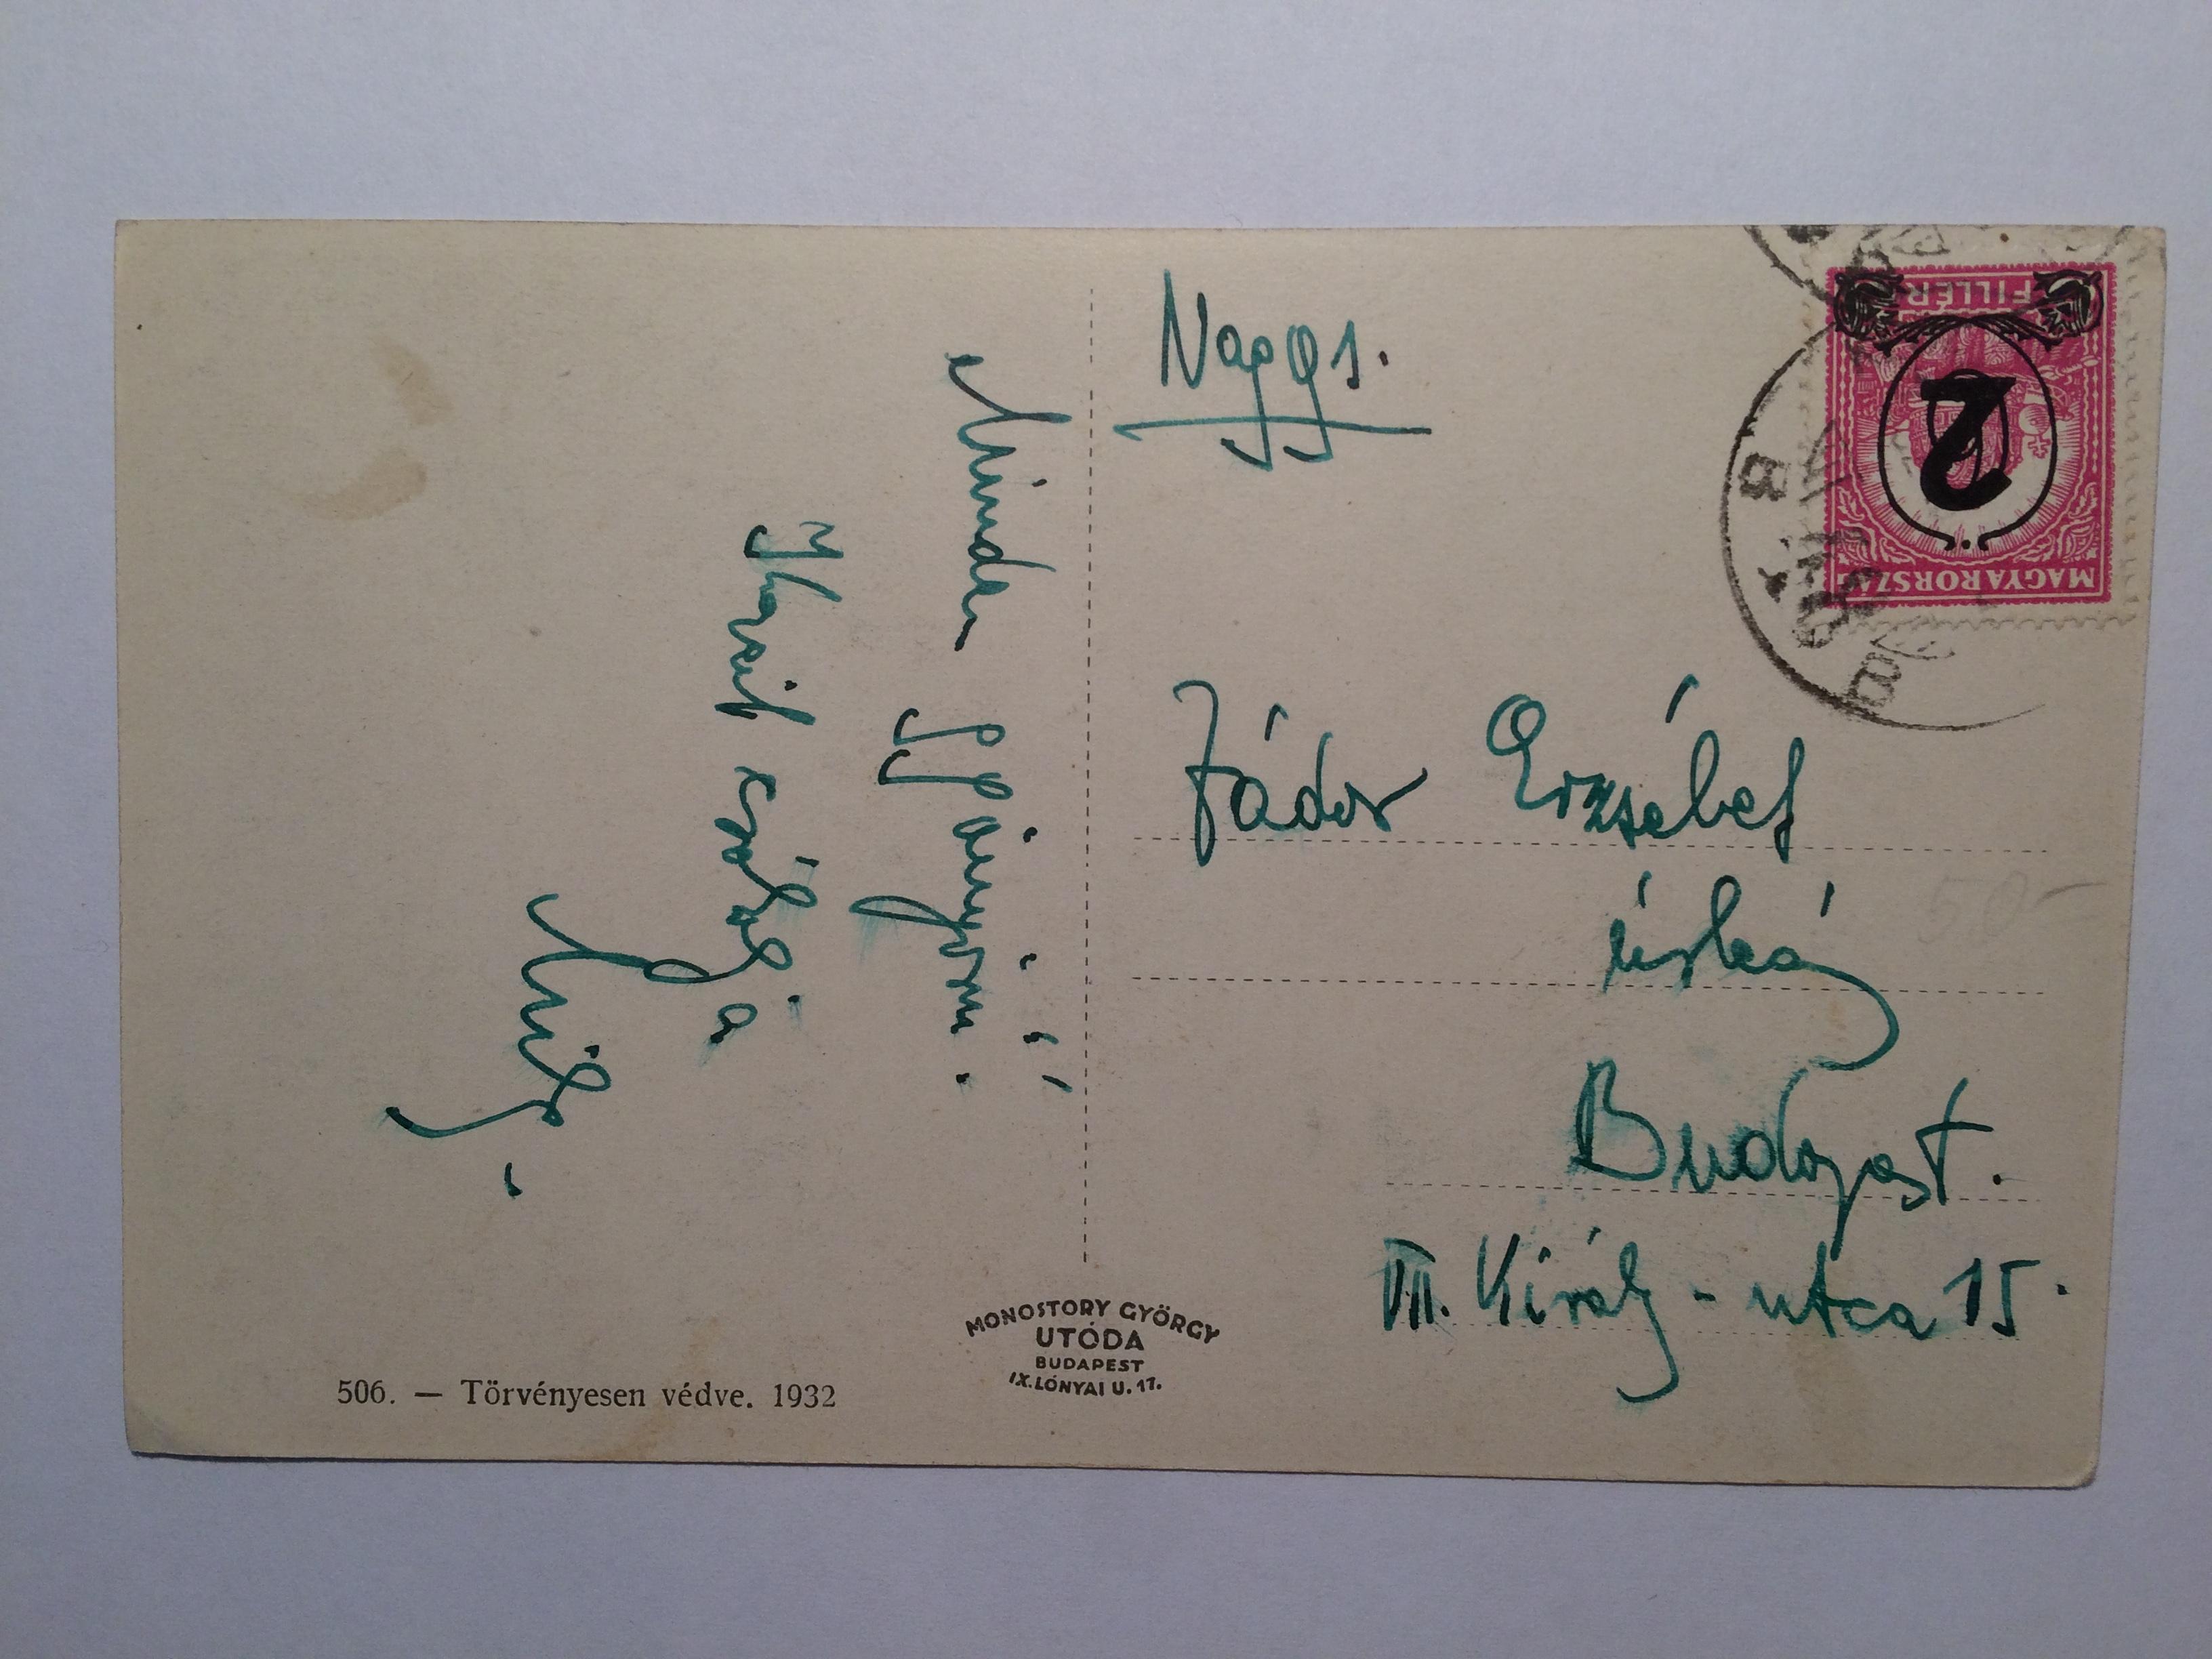 Nagys.
FILLÉR
2
MAGYARORSZÁG
Zádor Erzsébet
Budapest.
VII. Király-utca 15.
Minden
csókolja
50-
MONOSTORY GYÖRGY
UTÓDA
BUDAPEST
IX. LÓNYAI U. 17.
506. — Törvényesen védve. 1932